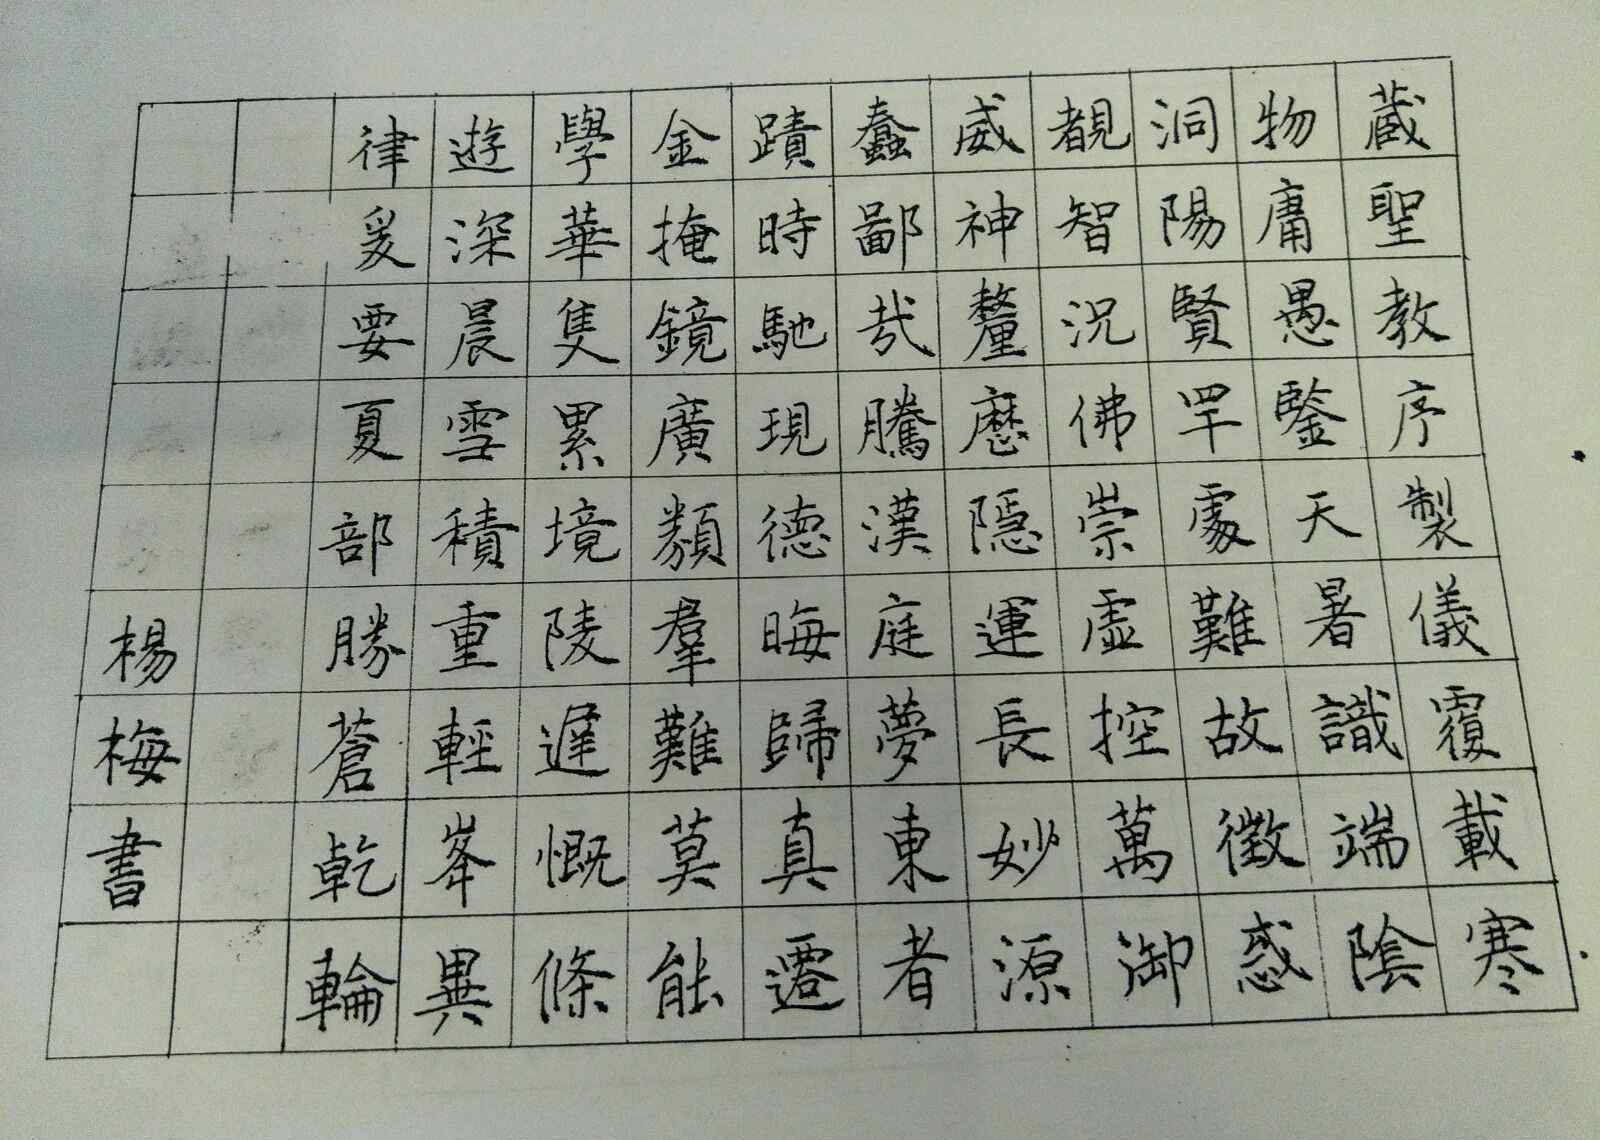 藏聖教序製儀覆載寒
物庸愚鑒天暑識端陰
洞陽賢罕處難故徵惑
覩智況佛崇虛控萬御
威神釐歷隱運長妙源
蠢鄙哉騰漢庭夢東者
蹟時馳現德晦歸真遷
金掩鏡廣類羣難莫能
學華隻累境陵遲慨條
遊深晨雪積重輕峯異
律爰要夏部勝蒼乾輪
楊梅書